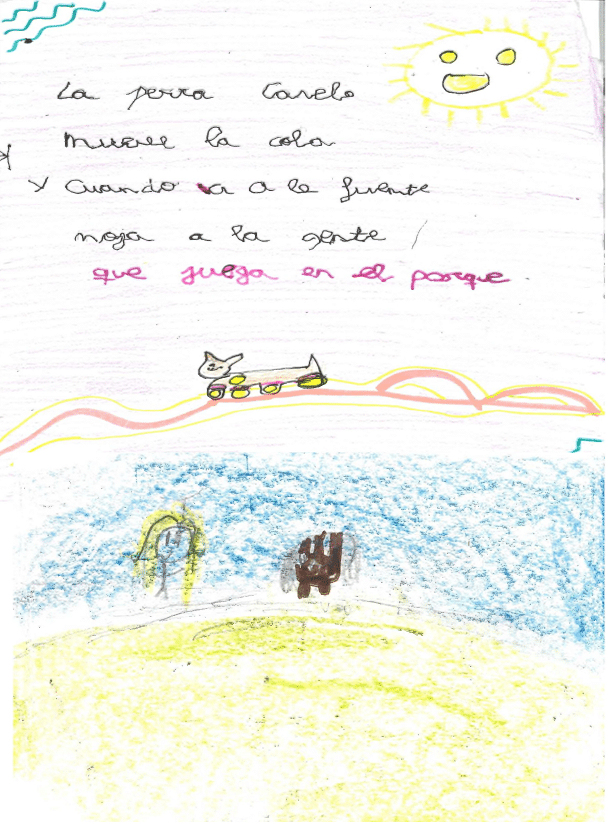 La perra Canelo
mueve la cola
y Cuando va a la fuente
moja a la gente
que juega en el parque